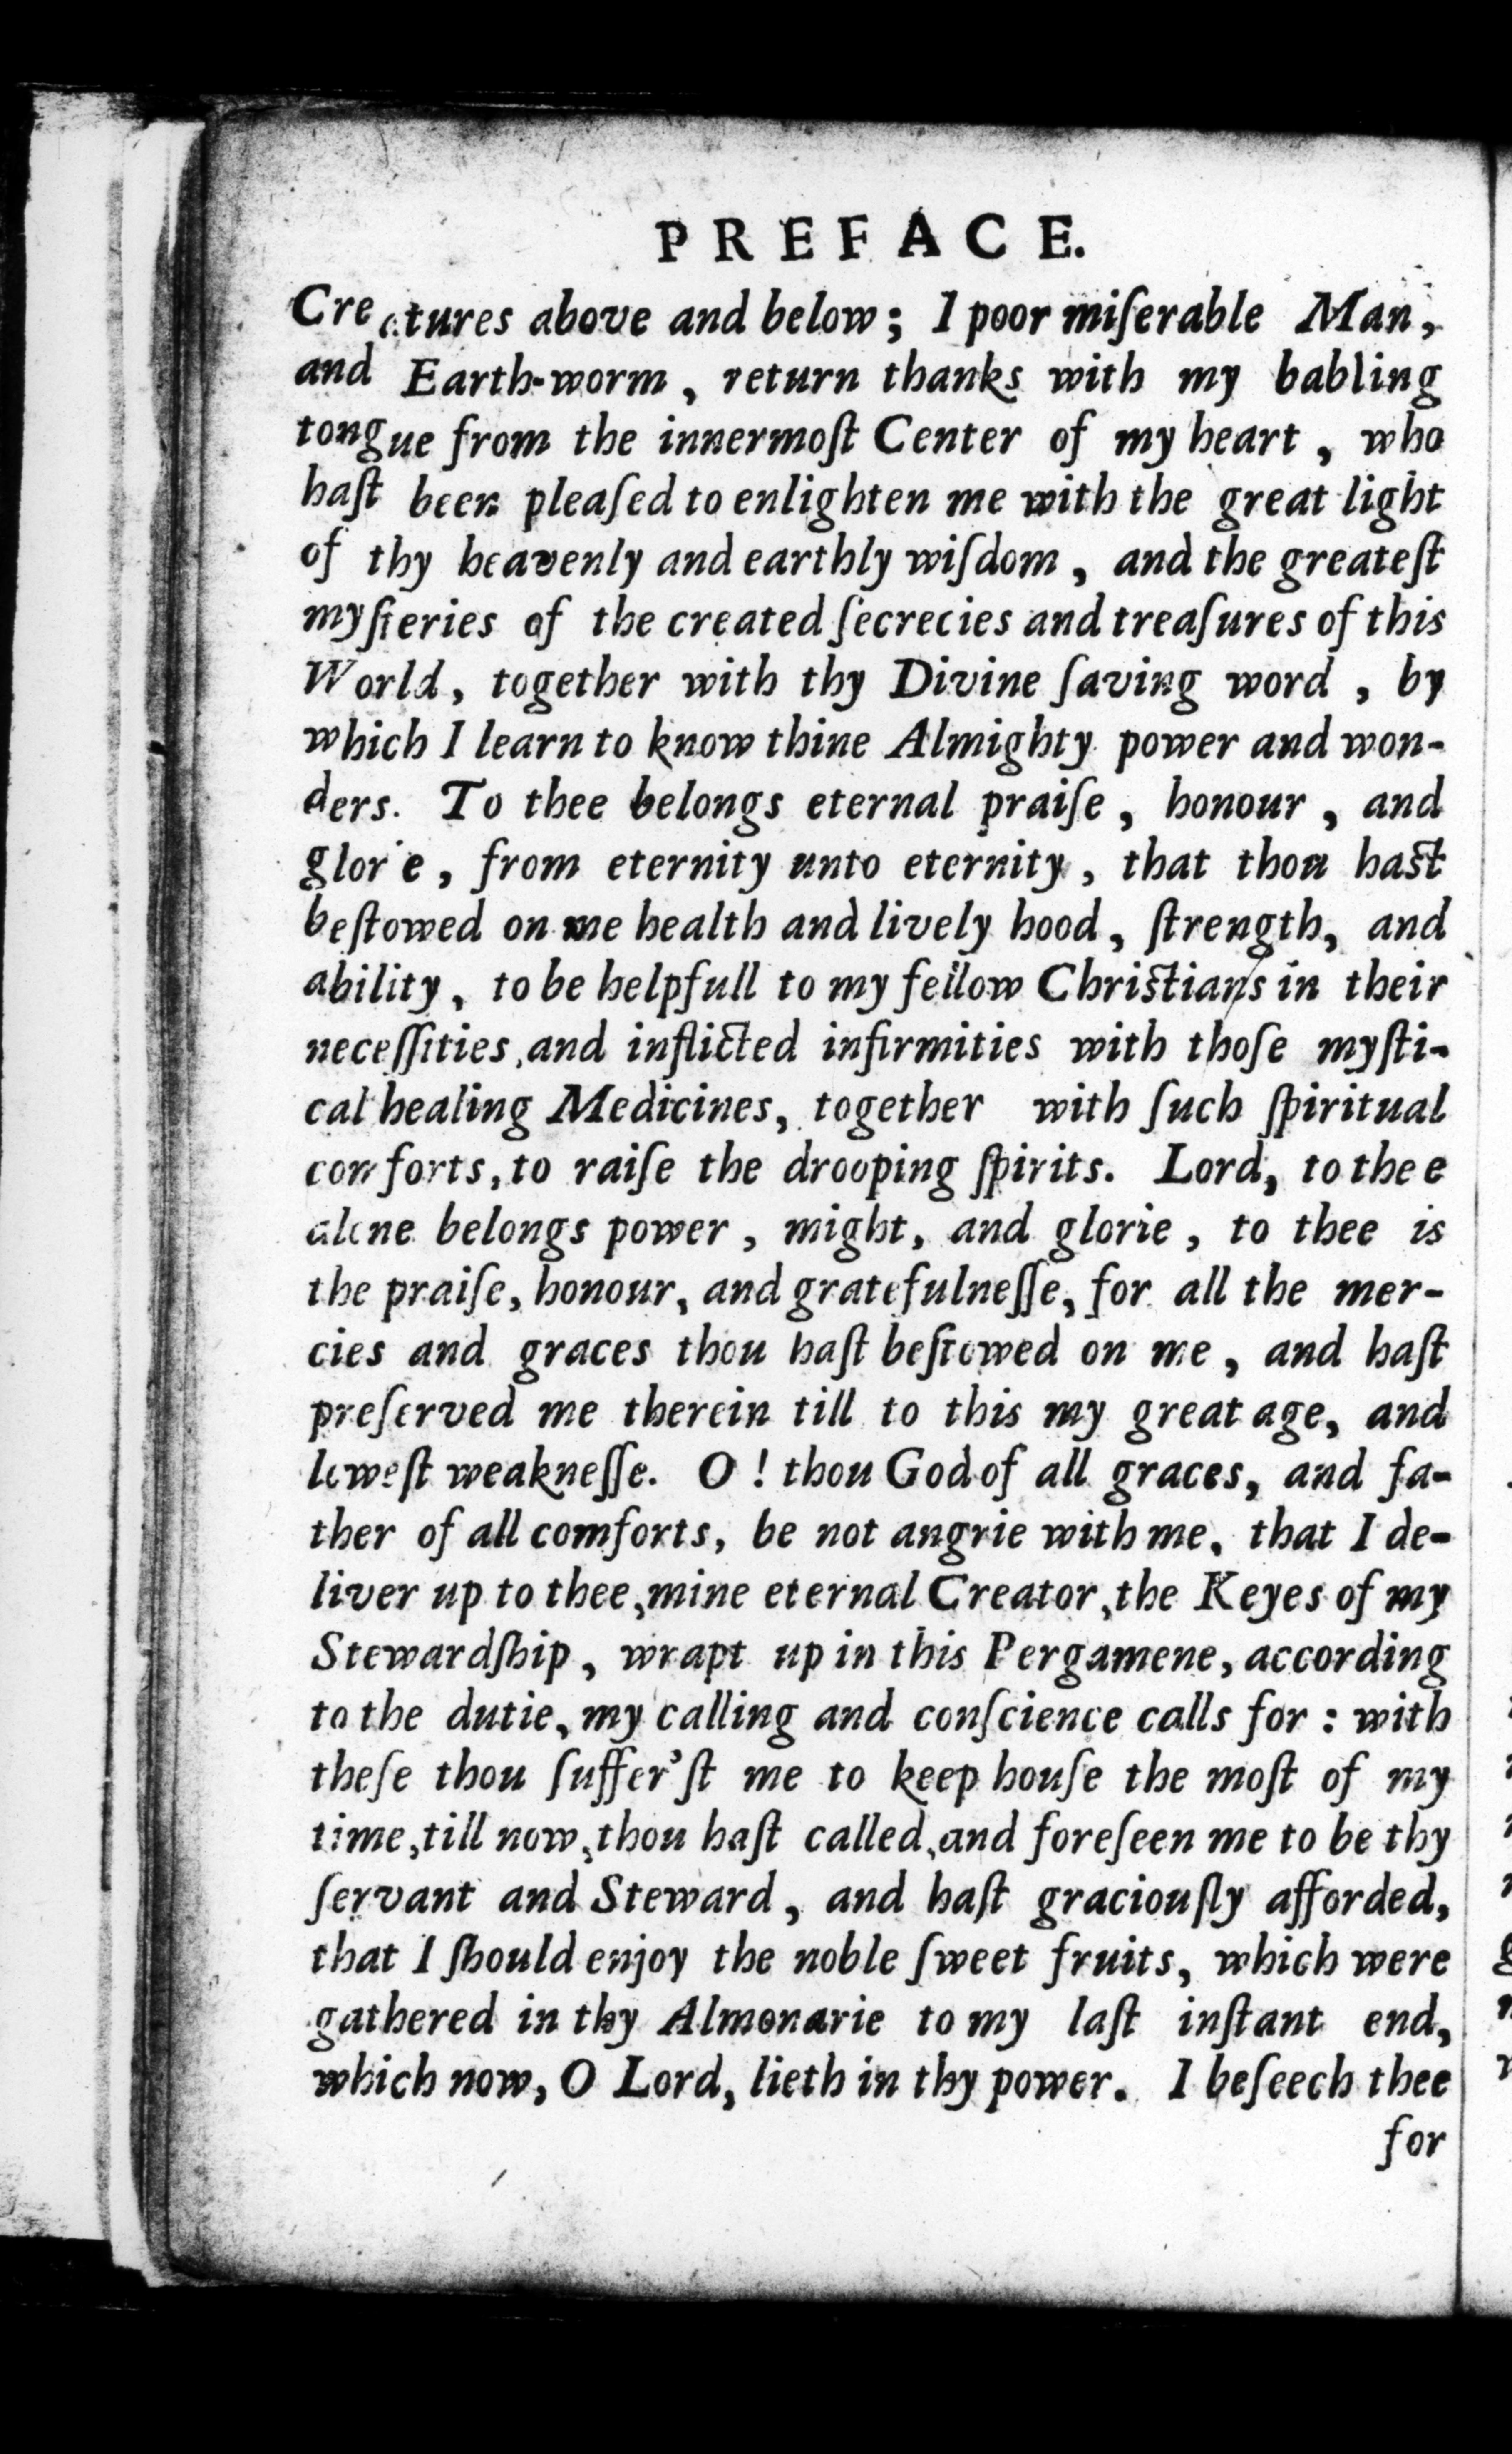 PREFACE.
Creatures above and below; I poor miſerable Man,
and Earth-worm, return thanks with my babling
tongue from the innermoſt Center of my heart, who
haſt been pleaſed to enlighten me with the great light
of thy heavenly and earthly wiſdom, and the greateſt
myſteries of the created ſecrecies and treaſures of this
World, together with thy Divine ſaving word, by
which I learn to know thine Almighty power and won-
ders. To thee belongs eternal praiſe, honour, and
glorie, from eternity unto eternity, that thou haſt
beſtowed on me health and lively hood, ſtrength, and
ability, to be helpfull to my fellow Chriſtians in their
neceſſities, and inflicted infirmities with thoſe myſti-
cal healing Medicines, together with ſuch ſpiritual
comforts, to raiſe the drooping ſpirits. Lord, to thee
alone belongs power, might, and glorie, to thee is
the praiſe, honour, and gratefulneſſe, for all the mer-
cies and graces thou haſt beſtowed on me, and haſt
preſerved me therein till to this my great age, and
loweſt weakneſſe. O! thou God of all graces, and fa-
ther of all comforts, be not angrie with me, that I de-
liver up to thee, mine eternal Creator, the Keyes of my
Stewardſhip, wrapt up in this Pergamene, according
to the dutie, my calling and conſcience calls for: with
theſe thou ſuffer'ſt me to keep houſe the moſt of my
time, till now, thou haſt called, and foreſeen me to be thy
ſervant and Steward, and haſt graciouſly afforded,
that I ſhould enjoy the noble ſweet fruits, which were
gathered in thy Almonarie to my laſt inſtant end,
which now, O Lord, lieth in thy power. I beſeech thee
for